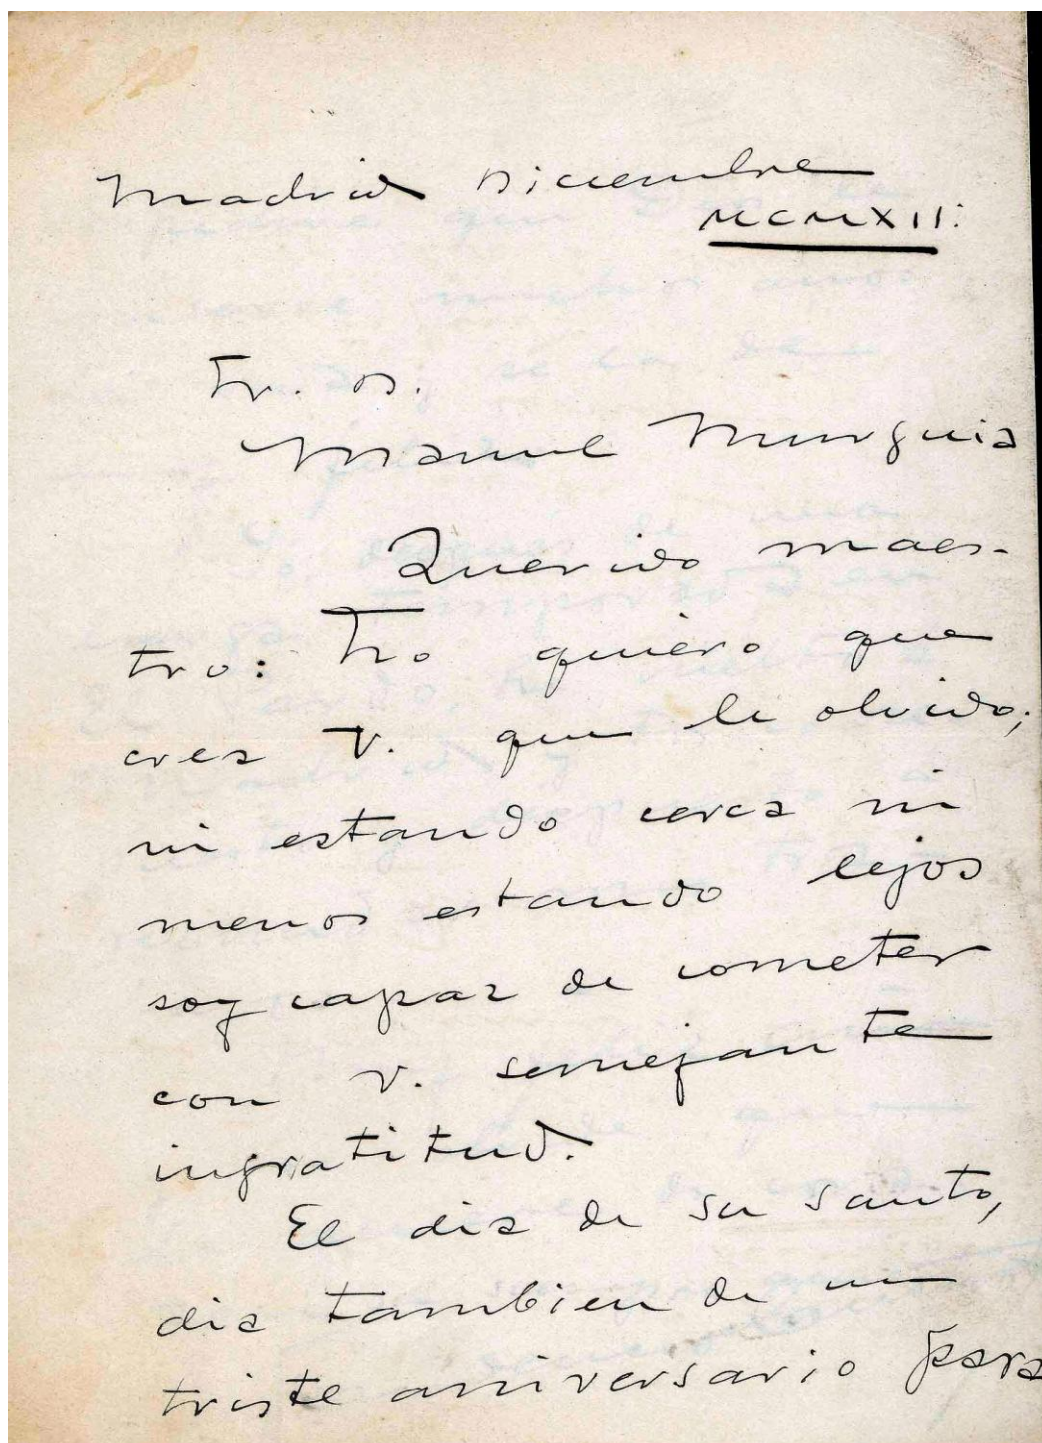 Madrid Diciembre
MCMXII:
Sr. D.
Manuel Murguia
Querido maes-
tro: No quiero que
crea V. que le olvido;
ni estando cerca ni
menos estando lejos
soy capaz de cometer
con V. semejante
ingratitud.
El dia de su santo,
dia tambien de un
triste aniversario para